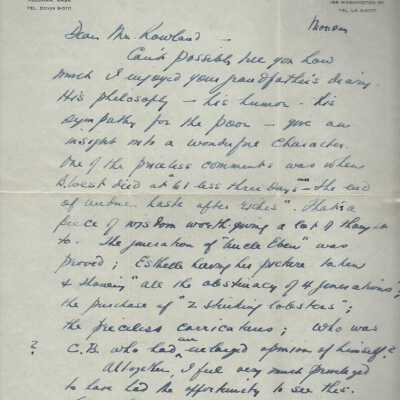 TEL.
TEL.
Monday
Dear Mr. Howland –
Can't possibly tell you how
much I enjoyed your grandfather's diary.
His philosophy – his humor – his
sympathy for the poor – give an
insight into a wonderful character.
One of the priceless comments was when
D. West died at "61 less three days" – "The end
of haste after riches". That's a
piece of wisdom worth giving a lot of thought
to. The generation of "Uncle Eben" was
proved; Esthelle having his picture taken
& showing "all the obstinacy of 4 generations";
the purchase of "2 stinking lobsters";
the priceless carricatures; Who was
? C.B. who had "an enlarged opinion of himself"?
Altogether, I feel very much privileged
to have had the opportunity to see this.